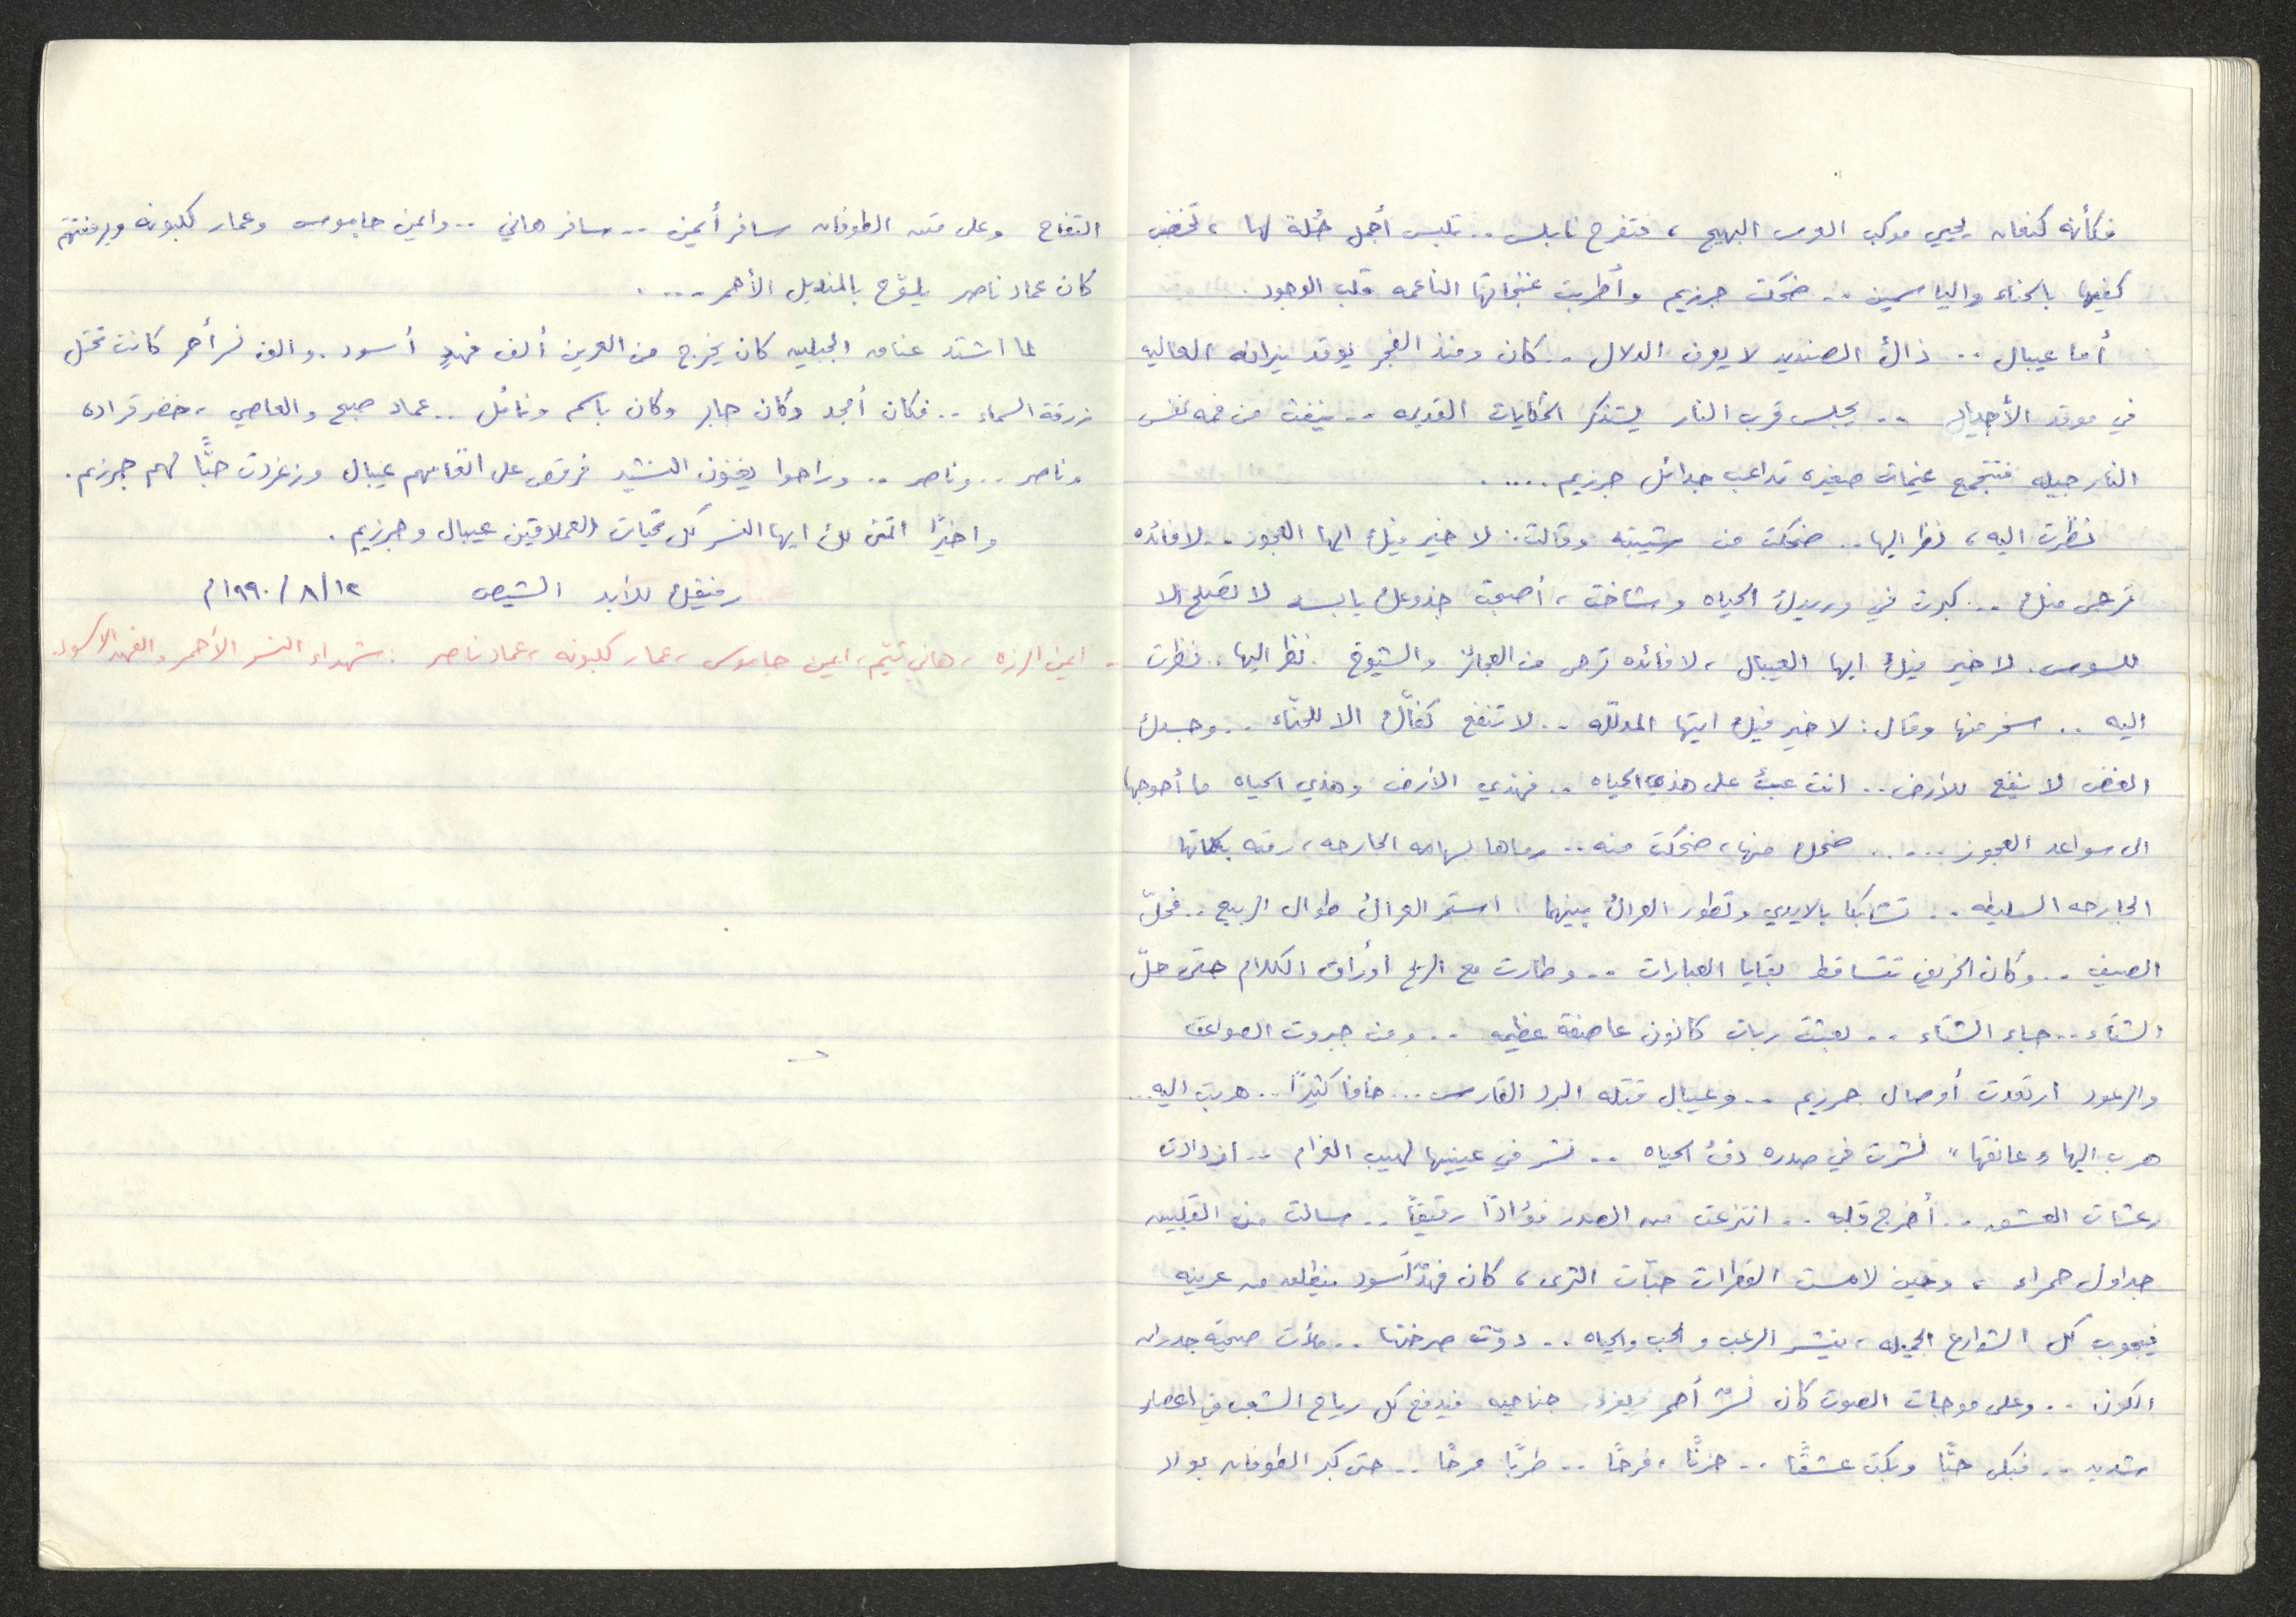 فكأنه كنعان يحيي موكب العرس البهيج، فتفرح نابلس.. تلبس أجمل حُلة لها، تخضب
كفيها بالحناء والياسمين.. ضحكت جرزيم وأطربت غنجاتها الناعمه قلب الوجود.
أما عيبال.. ذاك الصنديد لا يعرف الدلال.. كان ومنذ الفجر يوقد نيرانه العاليه
في موقد الأجيال.. يجلس قرب النار يستذكر الحكايات القديمه.. ينفث من فمه نفس
النارجيله فتتجمع غيمات صغيره تداعب جدائل جرزيم.....
نظرت اليه، نظر اليها.. ضحكت من شيبته وقالت: لا خير فيك ايها العجوز.. لا فائده
ترجى منك.. كبرت في وريدك الحياه وشاخت، أصبحت جذوعك يابسه لا تصلح الا
للسوس. لا خير فيك ايها العيبال، لا فائده ترجى من العجائز والشيوخ. نظر اليها.. نظرت
اليه.. سخر منها وقال: لا خير فيك ايتها المدلله.. لا تنفع كفاك الا للحنّاء.. وجسدك
الغض لا ينفع للأرض.. انت عبئ على هذي الحياه.. فهذي الأرض وهذي الحياه ما أحوجها
الى سواعد العجوز..... ضحك منها، ضحكت منه.. رماها بسهامه الجارحه، رمته بكلماتها
الجارحه السليطه.. تشابكا بالايدي وتطور العراك بينهما. استمر العراك طوال الربيع.. فحلّ
الصيف.. وكان الخريف تتساقط بقايا العبارات.. وطارت مع الريح اوراق الكلام حتى حلّ
الشتاء.. جاء الشتاء.. بعثت ربات كانون عاصفة عظيمه.. ومن جبروت الصواعق
والرعود ارتعدت أوصال جرزيم.. وعيبال قتله البرد القارس... خافا كثيرًا.. هربت اليه..
هرب اليها وعانقها، نشرت في صدره دفئ الحياه.. نشر في عينيها لهيب الغرام.. ازدادت
رعشات العشق.. أخرج قلبه.. انتزعت من الصدر فؤادًا رقيقًا.. سالت من القلبين
جداول حمراء، وحين لامست القطرات حبّات الثرى، كان فهدٌ أسود ينطلق من عرينه
فيجوب كل الشوارع الجميله، ينشر الرعب والحب والحياه.. دوّت صرختها.. ملأت صيحته جدران
الكون.. وعلى موجات الصوت كان نسرٌ أحمر يفرد جناحيه فيدفع كل رياح الشعب في اعصار
شديد.. فبكى حبًّا وبكت عشقًا.. حزنًا، فرحًا.. طربًا مرحًا.. حتى كبر الطوفان بواد
التفاح وعلى متن الطوفان سافر أيمن.. سافر هاني.. وايمن جاموس وعمار كلبونه وبرفقتهم
كان عماد ناصر يلوّح بالمنديل الأحمر....
لما اشتد عناق الجبلين كان يخرج من العرين ألف فهدٍ أسود. والف نسر أحمر كانت تحتل
زرقة السماء.. فكان أمجد وكان جابر وكان باسم ونائل.. عماد صبح والعاصي، خضر قراده
وناصر.. وناصر.. وراحوا يغنون النشيد فرقص على انغامهم عيبال وزغردت حبًّا لهم جرزيم.
واخيرًا اتمنى لك ايها النسر كل تحيات العملاقين عيبال وجرزيم.
رفيقك للأبد الشيص ١٢/٨/١٩٩٠م
- ايمن الرزه، هاني تيّم، ايمن جاموس، عمار كلبونه، عماد ناصر: شهداء النسر الأحمر والفهد الأسود.